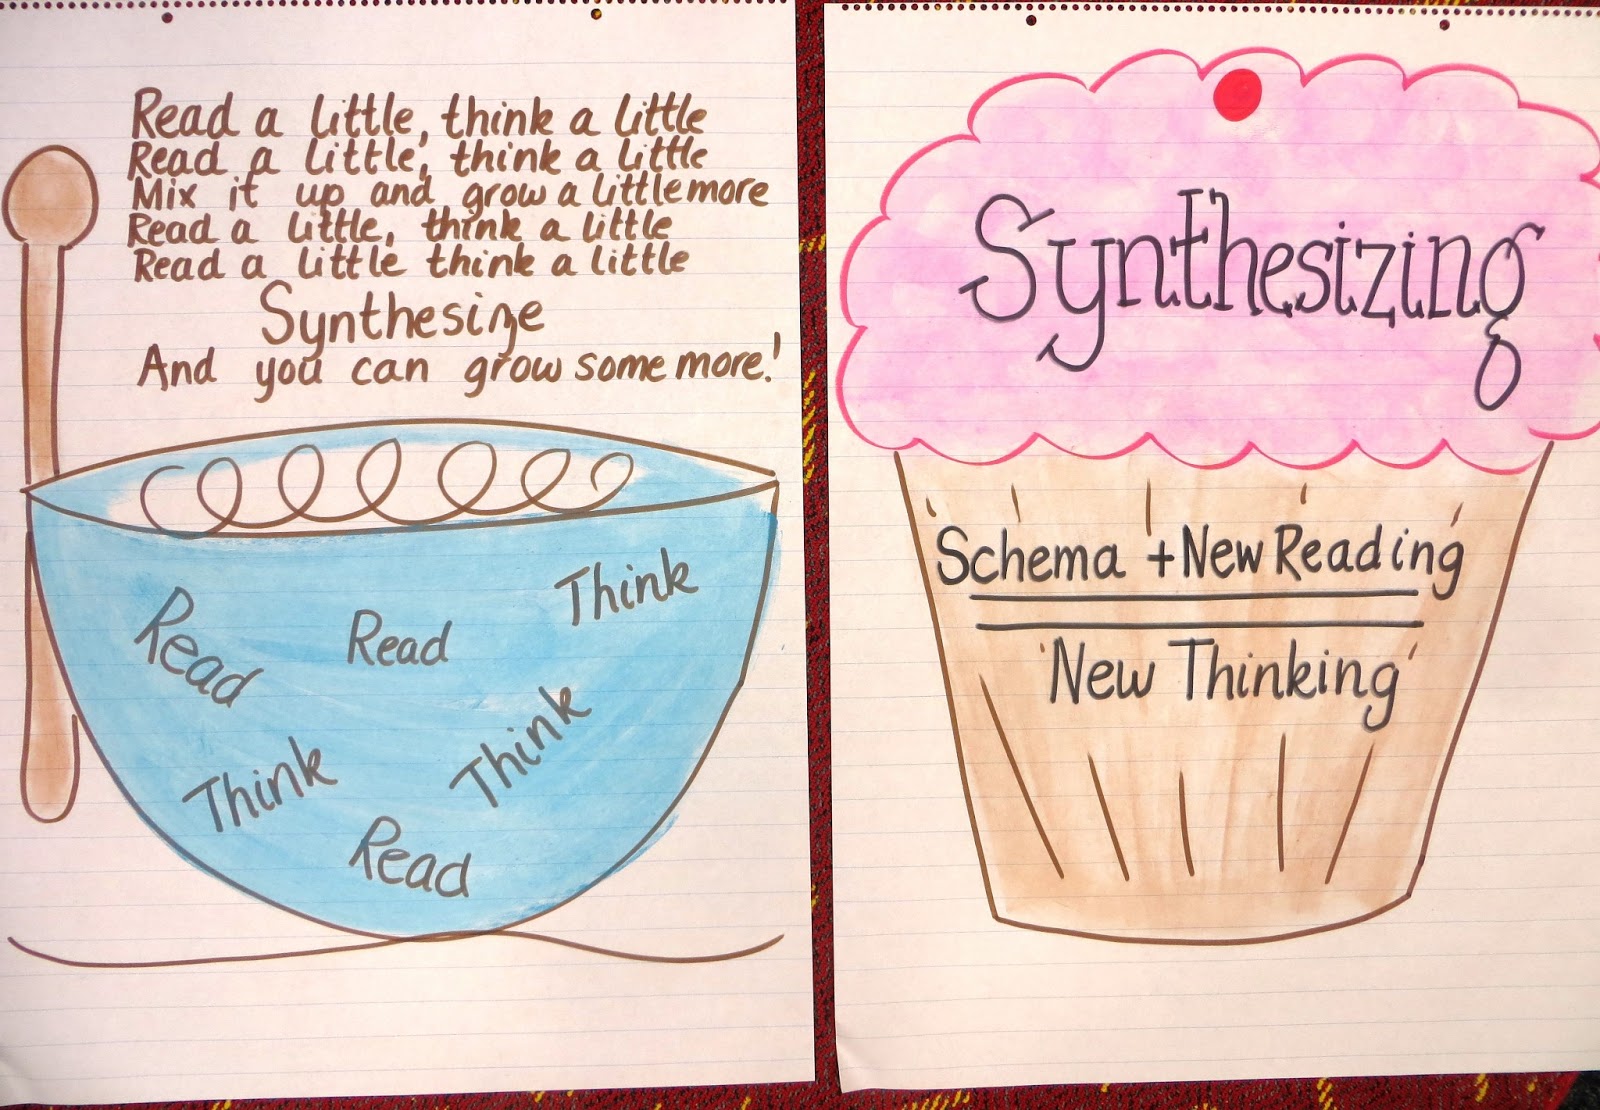 Read a little, think a little
Read a little, think a little
Mix it up and grow a little more
Read a little, think a little
Read a little think a little
Synthesize
And you can grow some more!
Think
Read
Read
Think
Think
Read
Synthesizing
Schema + New Reading
New Thinking